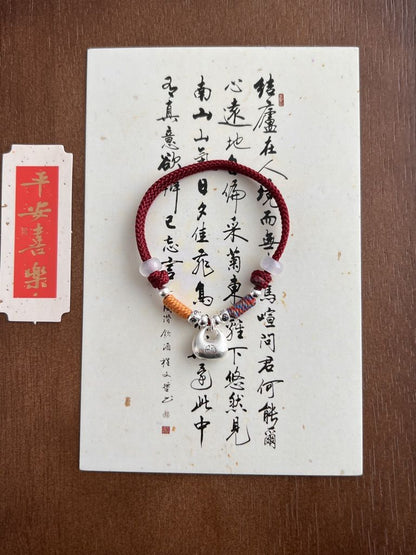 平安喜樂
结廬在人境而無馬喧問君何能爾
心遠地自偏采菊東籬下悠然見
南山山氣日夕佳飛鳥還此中
有真意欲辨已忘言